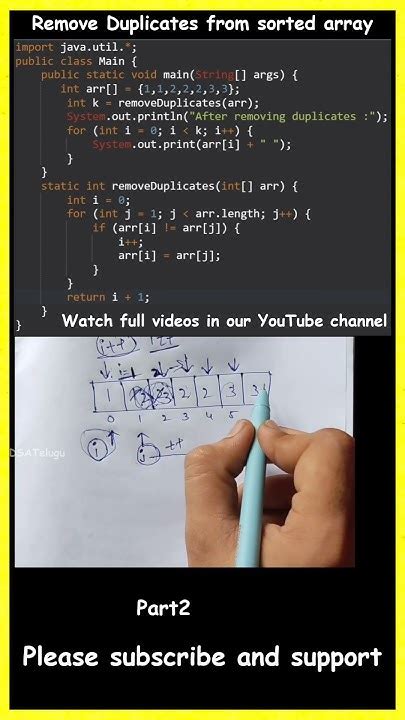 Remove Duplicates from sorted array
import java.util.*;
public class Main {
public static void main(String[] args) {
int arr[] = {1,1,2,2,2,3,3};
int k = removeDuplicates(arr);
System.out.println("After removing duplicates :");
for (int i = 0; i < k; i++) {
System.out.print(arr[i] + " ");
}
}
static int removeDuplicates(int[] arr) {
int i = 0;
for (int j = 1; j < arr.length; j++) {
if (arr[i] != arr[j]) {
i++;
arr[i] = arr[j];
}
}
return i + 1;
}
}
Watch full videos in our YouTube channel
i++
1 2 2 3
0 1 2 3 4 5
i j ++
DSATelugu
Part2
Please subscribe and support